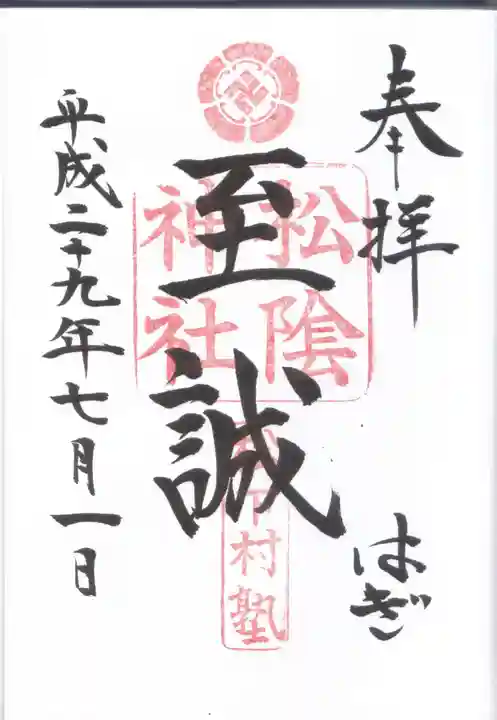 奉拝
はぎ
松陰
神社
至誠
松下村塾
平成二十九年七月一日